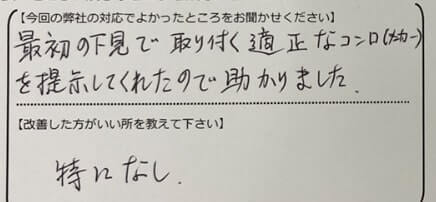 【今回の弊社の対応でよかったところをお聞かせください】
最初の下見で取り付く適正なコンロ(メーカー)
を提示してくれたので助かりました.
【改善した方がいい所を教えて下さい】
特になし.